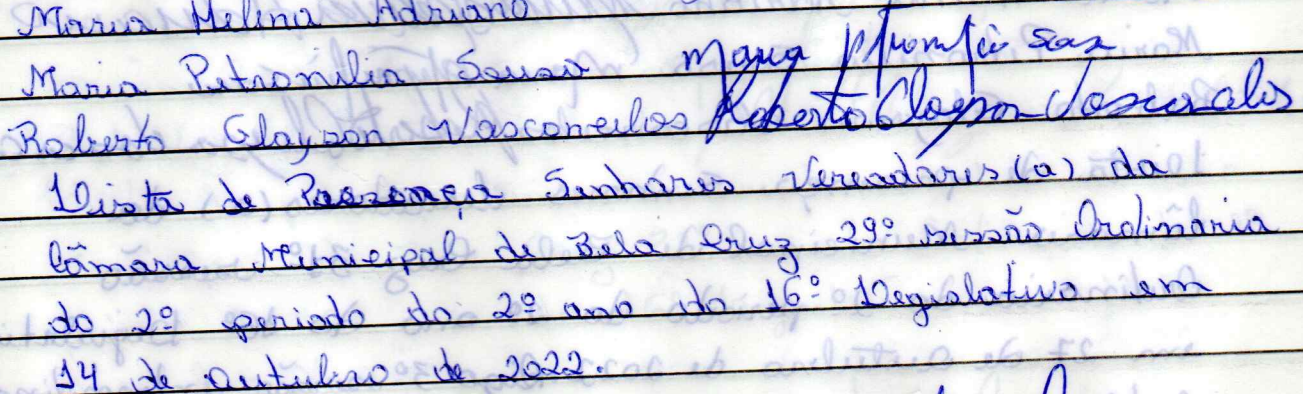 Maria Helina Adriano
Maria Petronilia Sousa Maria
Roberto Glayson Vasconcelos Roberto Glayson Vasconcelos
Lista de Presença Senhores Vereadores(a) da
Câmara Municipal de Bela Cruz 29º sessão Ordinaria
do 2º periodo do 2º ano do 16º Legislativo em
14 de outubro de 2022.